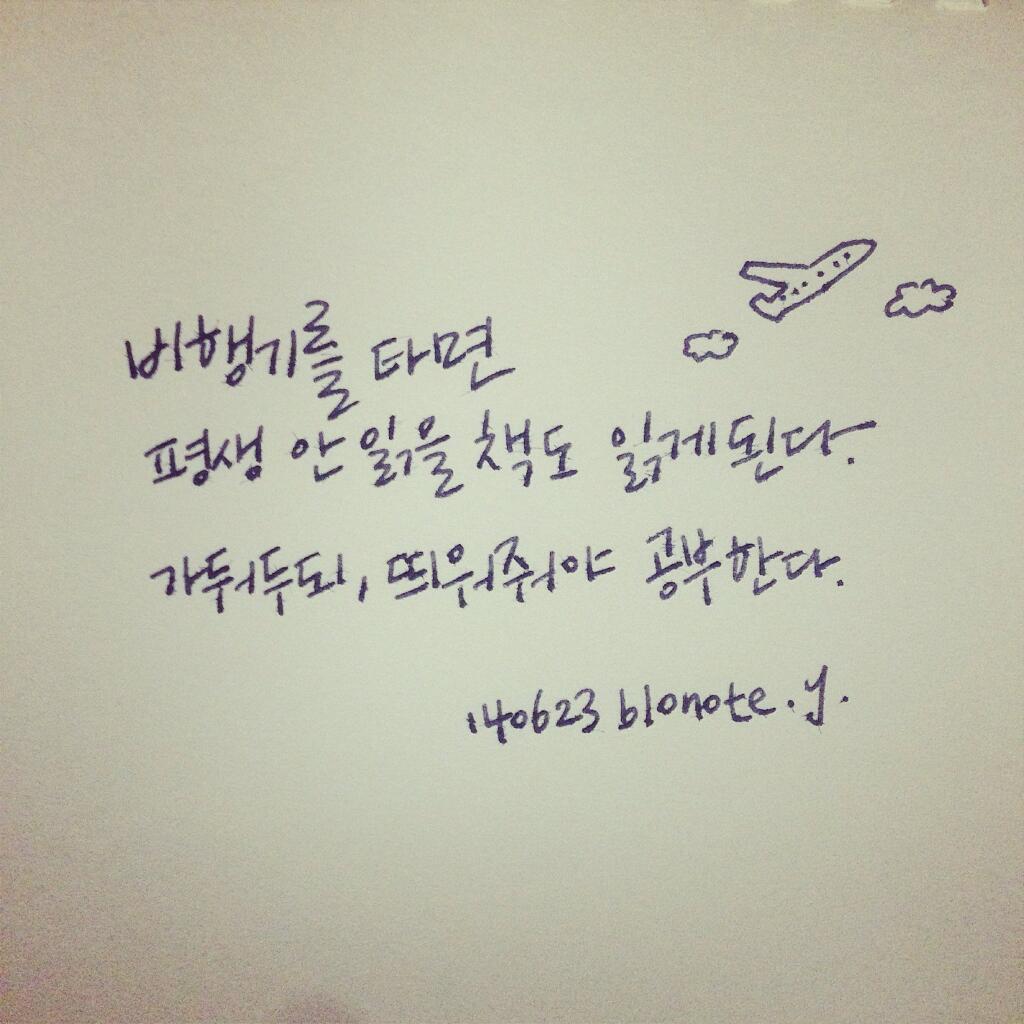 비행기를 타면
평생 안 읽을 책도 읽게된다.
가둬두되, 띄워줘야 공부한다.
140623 blonote.y.